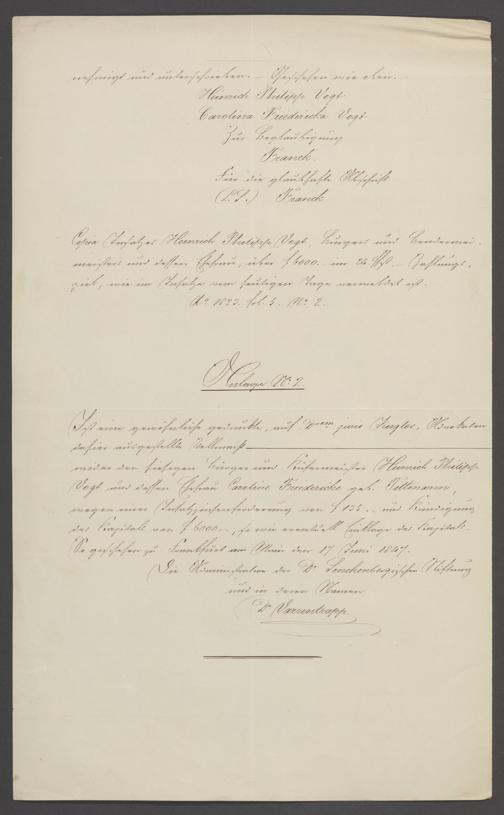 nehmigt und unterschrieben. – Geschehen wie oben. –
Heinrich Philipp Vogt
Carolina Friedericka Vogt
Zur Beglaubigung
Franck.
Für die glaubhafte Abschrift
(L.S.) Franck
Copia Insatzes Heinrich Philipp Vogt, Burgers und Bendermei-
meisters und dessen Ehefrau, über f 6000.– im 24 – Zahlungs-
ziel, wie im Insatze vom heutigen Tage vermeldet ist.
Ao 1823. fol. 5. No 2.
Anlage No 2.
Ist eine gewöhnliche gedruckte, auf Drem juris Kugler, Advokaten
dahier ausgestellte Vollmacht
wider den hiesigen Bürger und Küfermeister Heinrich Philipp
Vogt und dessen Ehefrau Caroline Friedericke geb. Tettmann,
wegen einer Insatzzinsenforderung von f 135.– und Kündigung
des Kapitals von f 6000.–, so wie eventuell Einklage des Kapitals.
So geschehen zu Frankfurt am Main den 17 Juni 1847.
Die Administration der Dr. Senckenbergischen Stiftung
und in deren Namen
Dr Varrentrapp